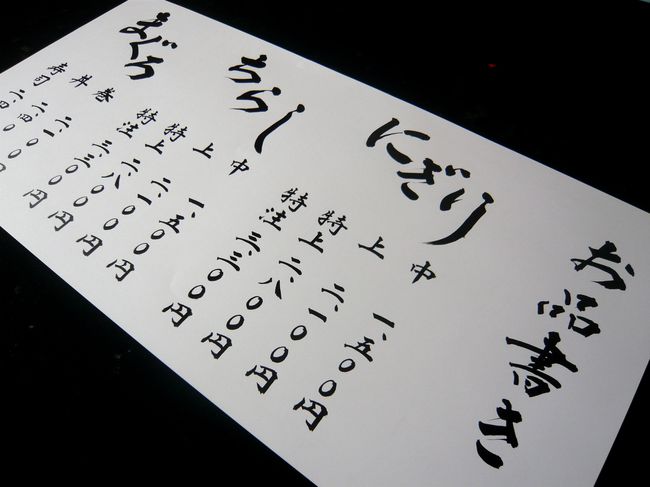 お品書き
にぎり
中 一、五〇〇円
上 二、一〇〇円
特上 二、八〇〇円
特注 三、三〇〇円
ちらし
中 一、五〇〇円
上 二、一〇〇円
特上 二、八〇〇円
特注 三、三〇〇円
まぐろ
巻 二、一〇〇円
丼 二、四〇
寿司 二、四